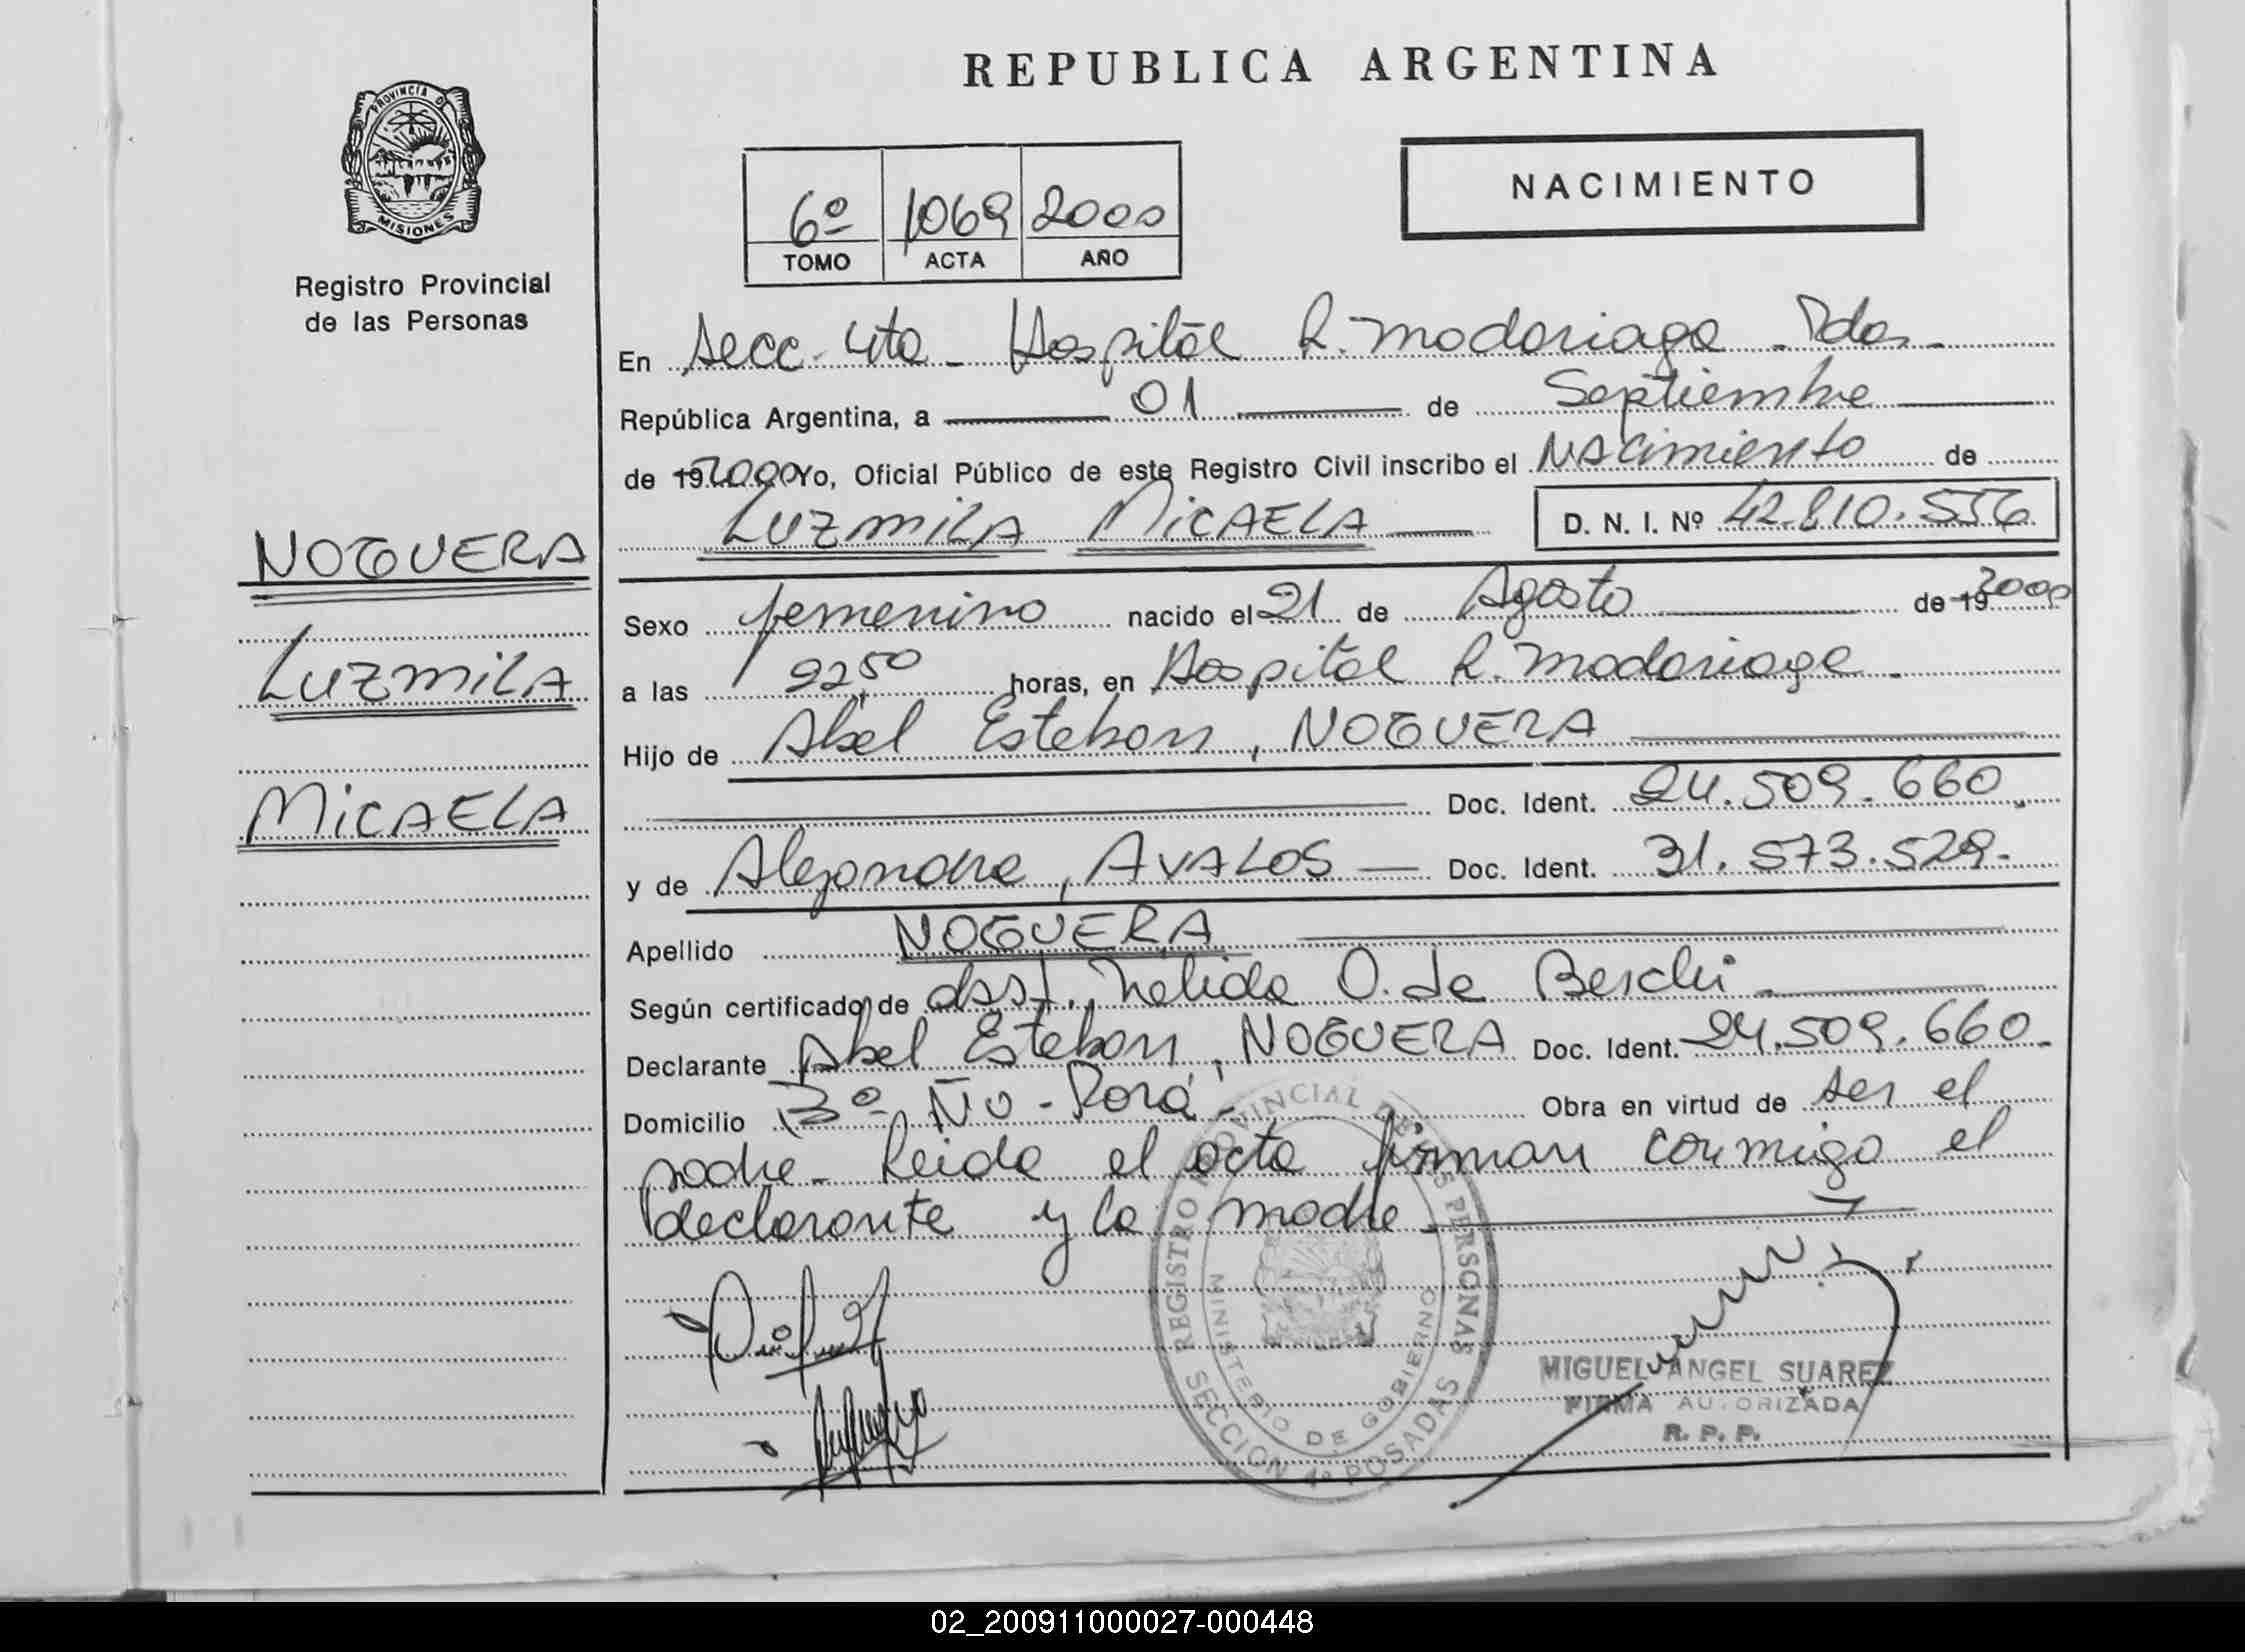 REPUBLICA ARGENTINA
PROVINCIA DE
MISIONES
Registro Provincial
de las Personas
NACIMIENTO
6º 1069 2000
TOMO ACTA AÑO
En Secc. 4ta - Hospital R. Madariaga - Pdas -
República Argentina, a 01 de Septiembre
de 19 2000 Yo, Oficial Público de este Registro Civil inscribo el Nacimiento de
LUZMILA MICAELA D. N. I. Nº 42.810.556
NOGUERA
LUZMILA
MICAELA
Sexo femenino nacido el 21 de Agosto de 19 2000
a las 22,50 horas, en Hospital R. Madariaga.
Hijo de Abel Esteban, NOGUERA
Doc. Ident. 24.509.660.
y de Alejandra, AVALOS — Doc. Ident. 31.573.529.
Apellido NOGUERA
Según certificado de Obst. Nélida O. de
Declarante Abel Esteban, NOGUERA Doc. Ident. 24.509.660.
Domicilio Bº Ñu-Porá - Obra en virtud de ser el
padre - Leida el acta firman conmigo el
declarante y la madre.
REGISTRO PROVINCIAL DE LAS PERSONAS
MINISTERIO DE GOBIERNO
SECCION 4º POSADAS
MIGUEL ANGEL SUAREZ
FIRMA AUTORIZADA
R. P. P.
02_200911000027-000448